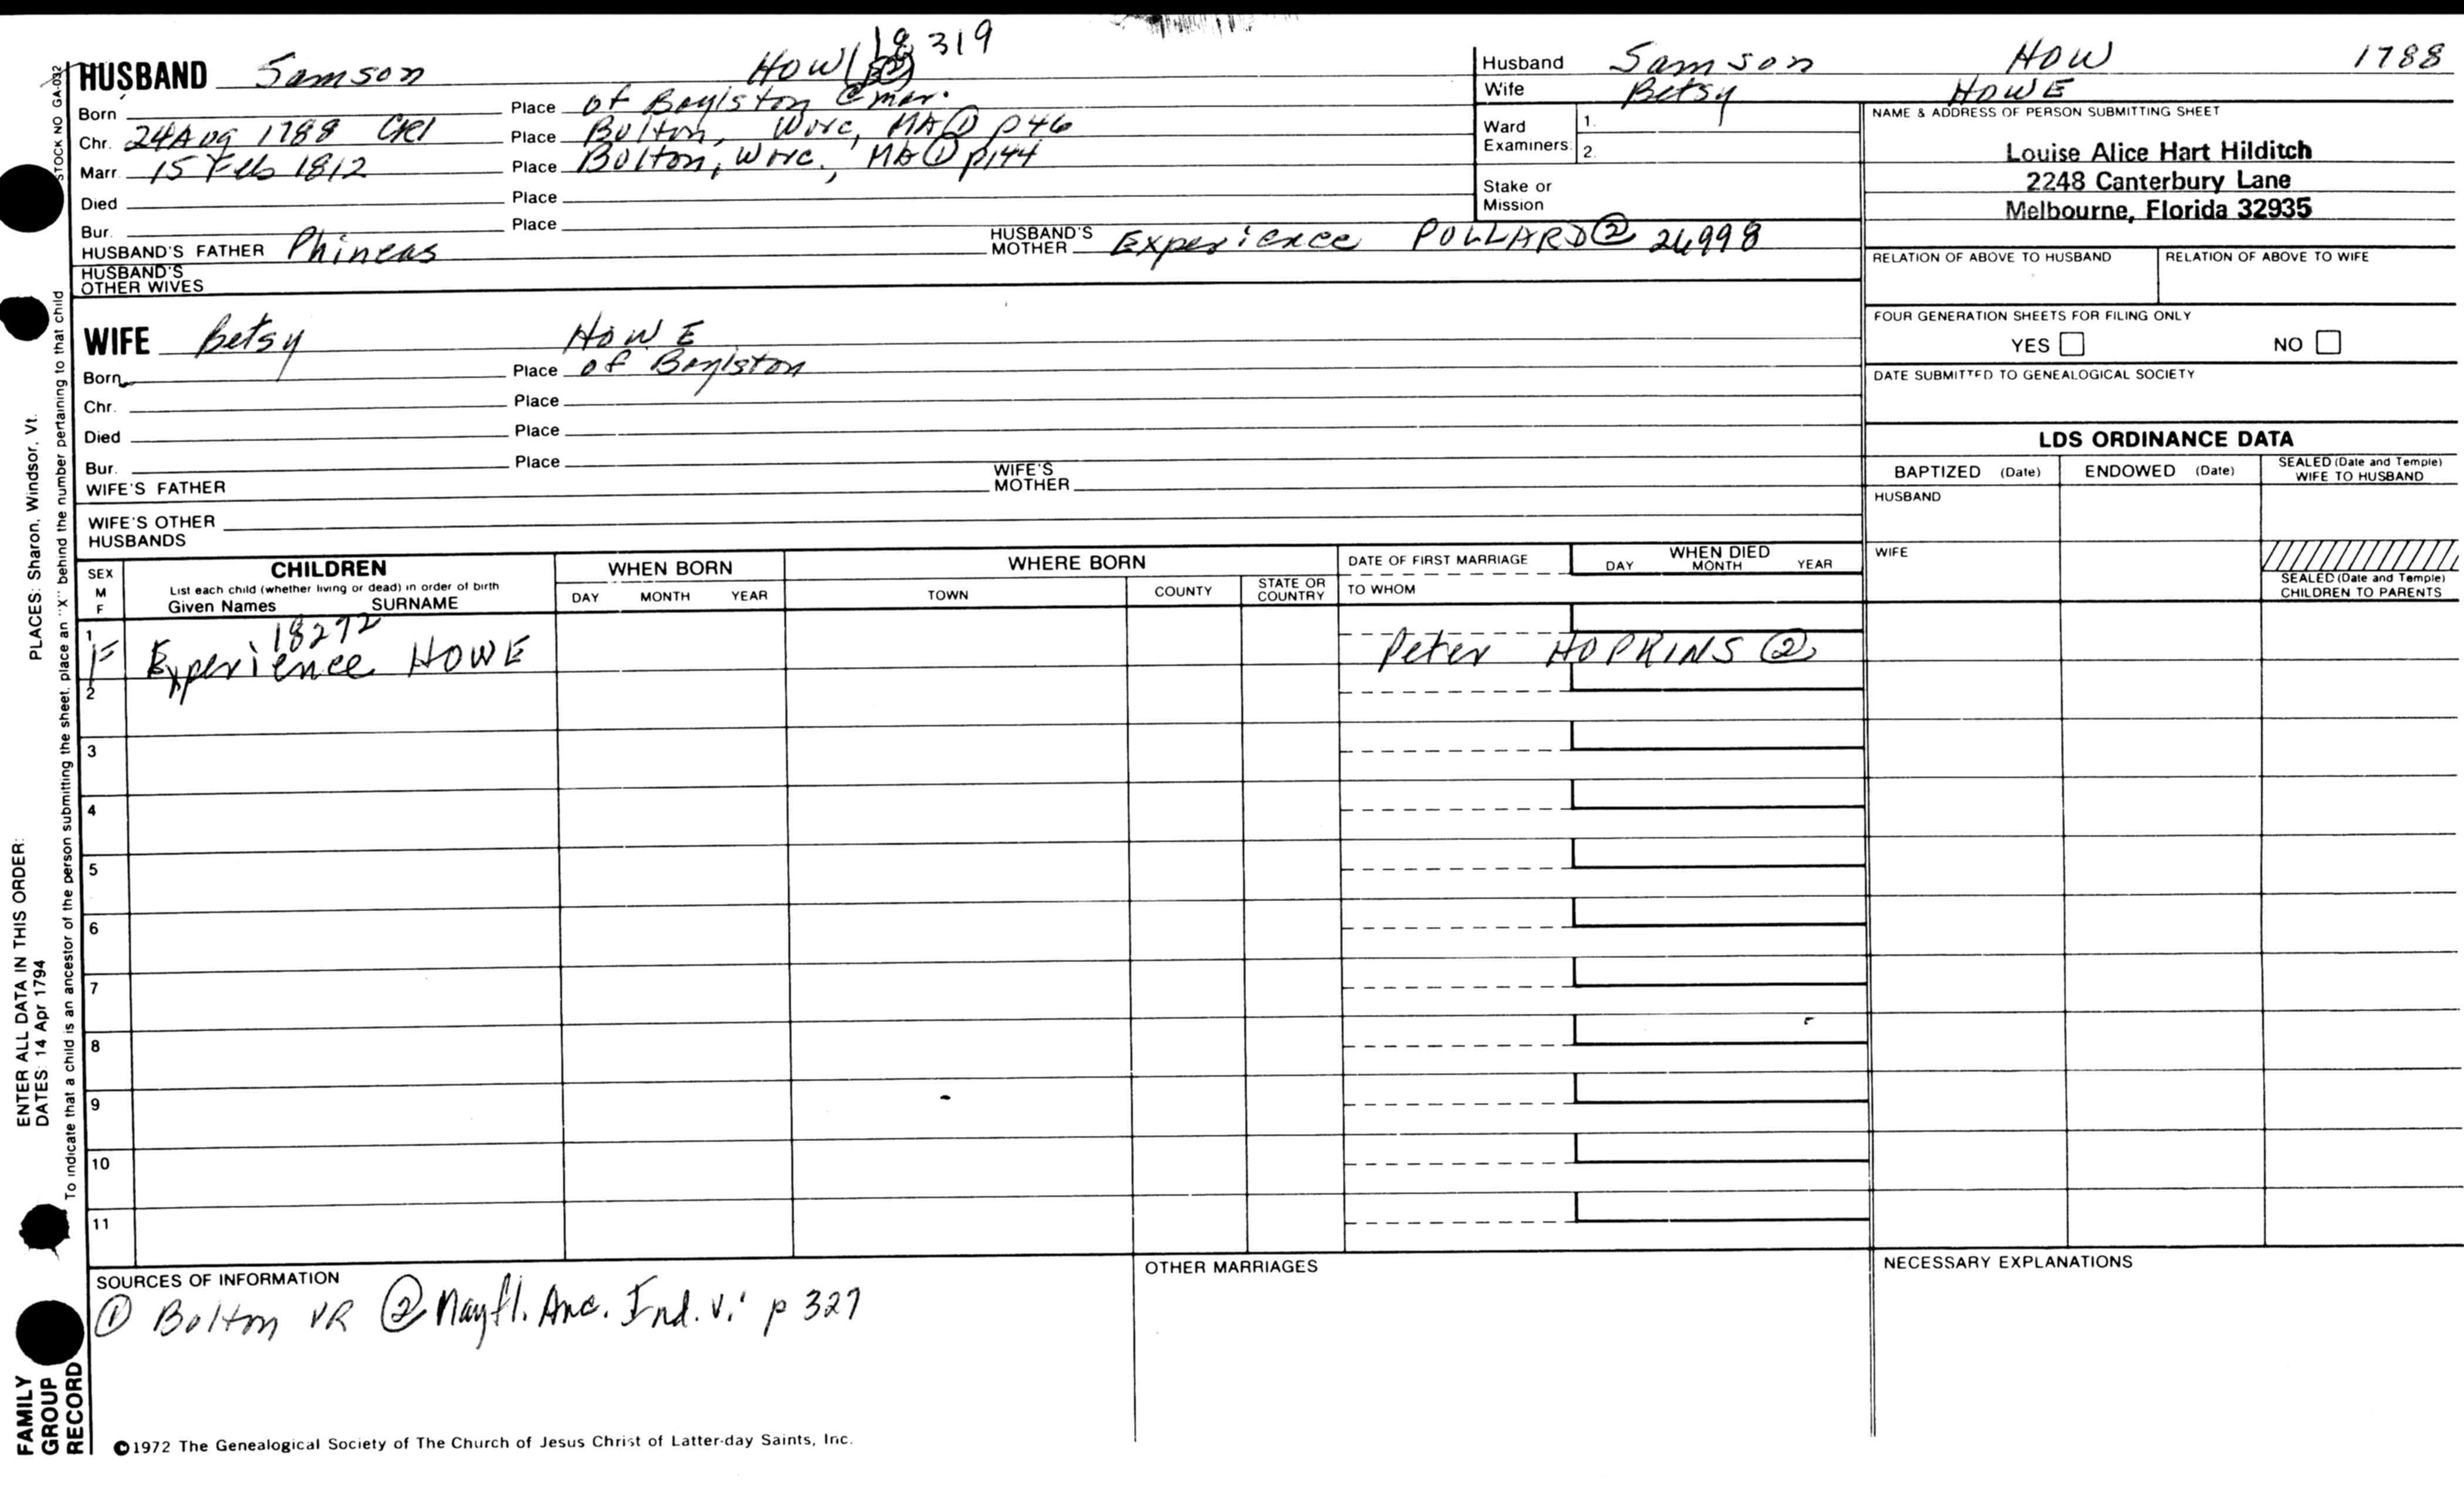 319
HUSBAND Samson HOW
Born Place of Boylston @ mar.
Chr. 24 Aug 1788 CR1 Place Bolton, Worc, MA ① p46
Marr. 15 Feb 1812 Place Bolton, Worc., MA ① p144
Died Place
Bur. Place
HUSBAND'S FATHER Phineas HUSBAND'S MOTHER Experience POLLARD ② 26998
HUSBAND'S OTHER WIVES
WIFE Betsy HOWE
Born Place of Boylston
Chr. Place
Died Place
Bur. Place
WIFE'S FATHER WIFE'S MOTHER
WIFE'S OTHER HUSBANDS
Husband Samson HOW 1788
Wife Betsy HOWE
Ward Examiners: 1.
2.
Stake or Mission
NAME & ADDRESS OF PERSON SUBMITTING SHEET
Louise Alice Hart Hilditch
2248 Canterbury Lane
Melbourne, Florida 32935
RELATION OF ABOVE TO HUSBAND RELATION OF ABOVE TO WIFE
FOUR GENERATION SHEETS FOR FILING ONLY
YES NO
DATE SUBMITTED TO GENEALOGICAL SOCIETY
LDS ORDINANCE DATA
BAPTIZED (Date) ENDOWED (Date) SEALED (Date and Temple) WIFE TO HUSBAND
HUSBAND
WIFE
SEALED (Date and Temple) CHILDREN TO PARENTS
SEX M F
CHILDREN
List each child (whether living or dead) in order of birth
Given Names SURNAME
WHEN BORN
DAY MONTH YEAR
WHERE BORN
TOWN COUNTY STATE OR COUNTRY
DATE OF FIRST MARRIAGE
TO WHOM
WHEN DIED
DAY MONTH YEAR
18272
1 F Experience HOWE Peter HOPKINS ②
2
3
4
5
6
7
8
9
10
11
SOURCES OF INFORMATION
① Bolton VR ② Mayfl. Anc. Ind. v.1 p 327
OTHER MARRIAGES
NECESSARY EXPLANATIONS
©1972 The Genealogical Society of The Church of Jesus Christ of Latter-day Saints, Inc.
STOCK NO GA-032
To indicate that a child is an ancestor of the person submitting the sheet, place an "X" behind the number pertaining to that child
PLACES: Sharon, Windsor, Vt.
ENTER ALL DATA IN THIS ORDER:
DATES: 14 Apr 1794
FAMILY
GROUP
RECORD